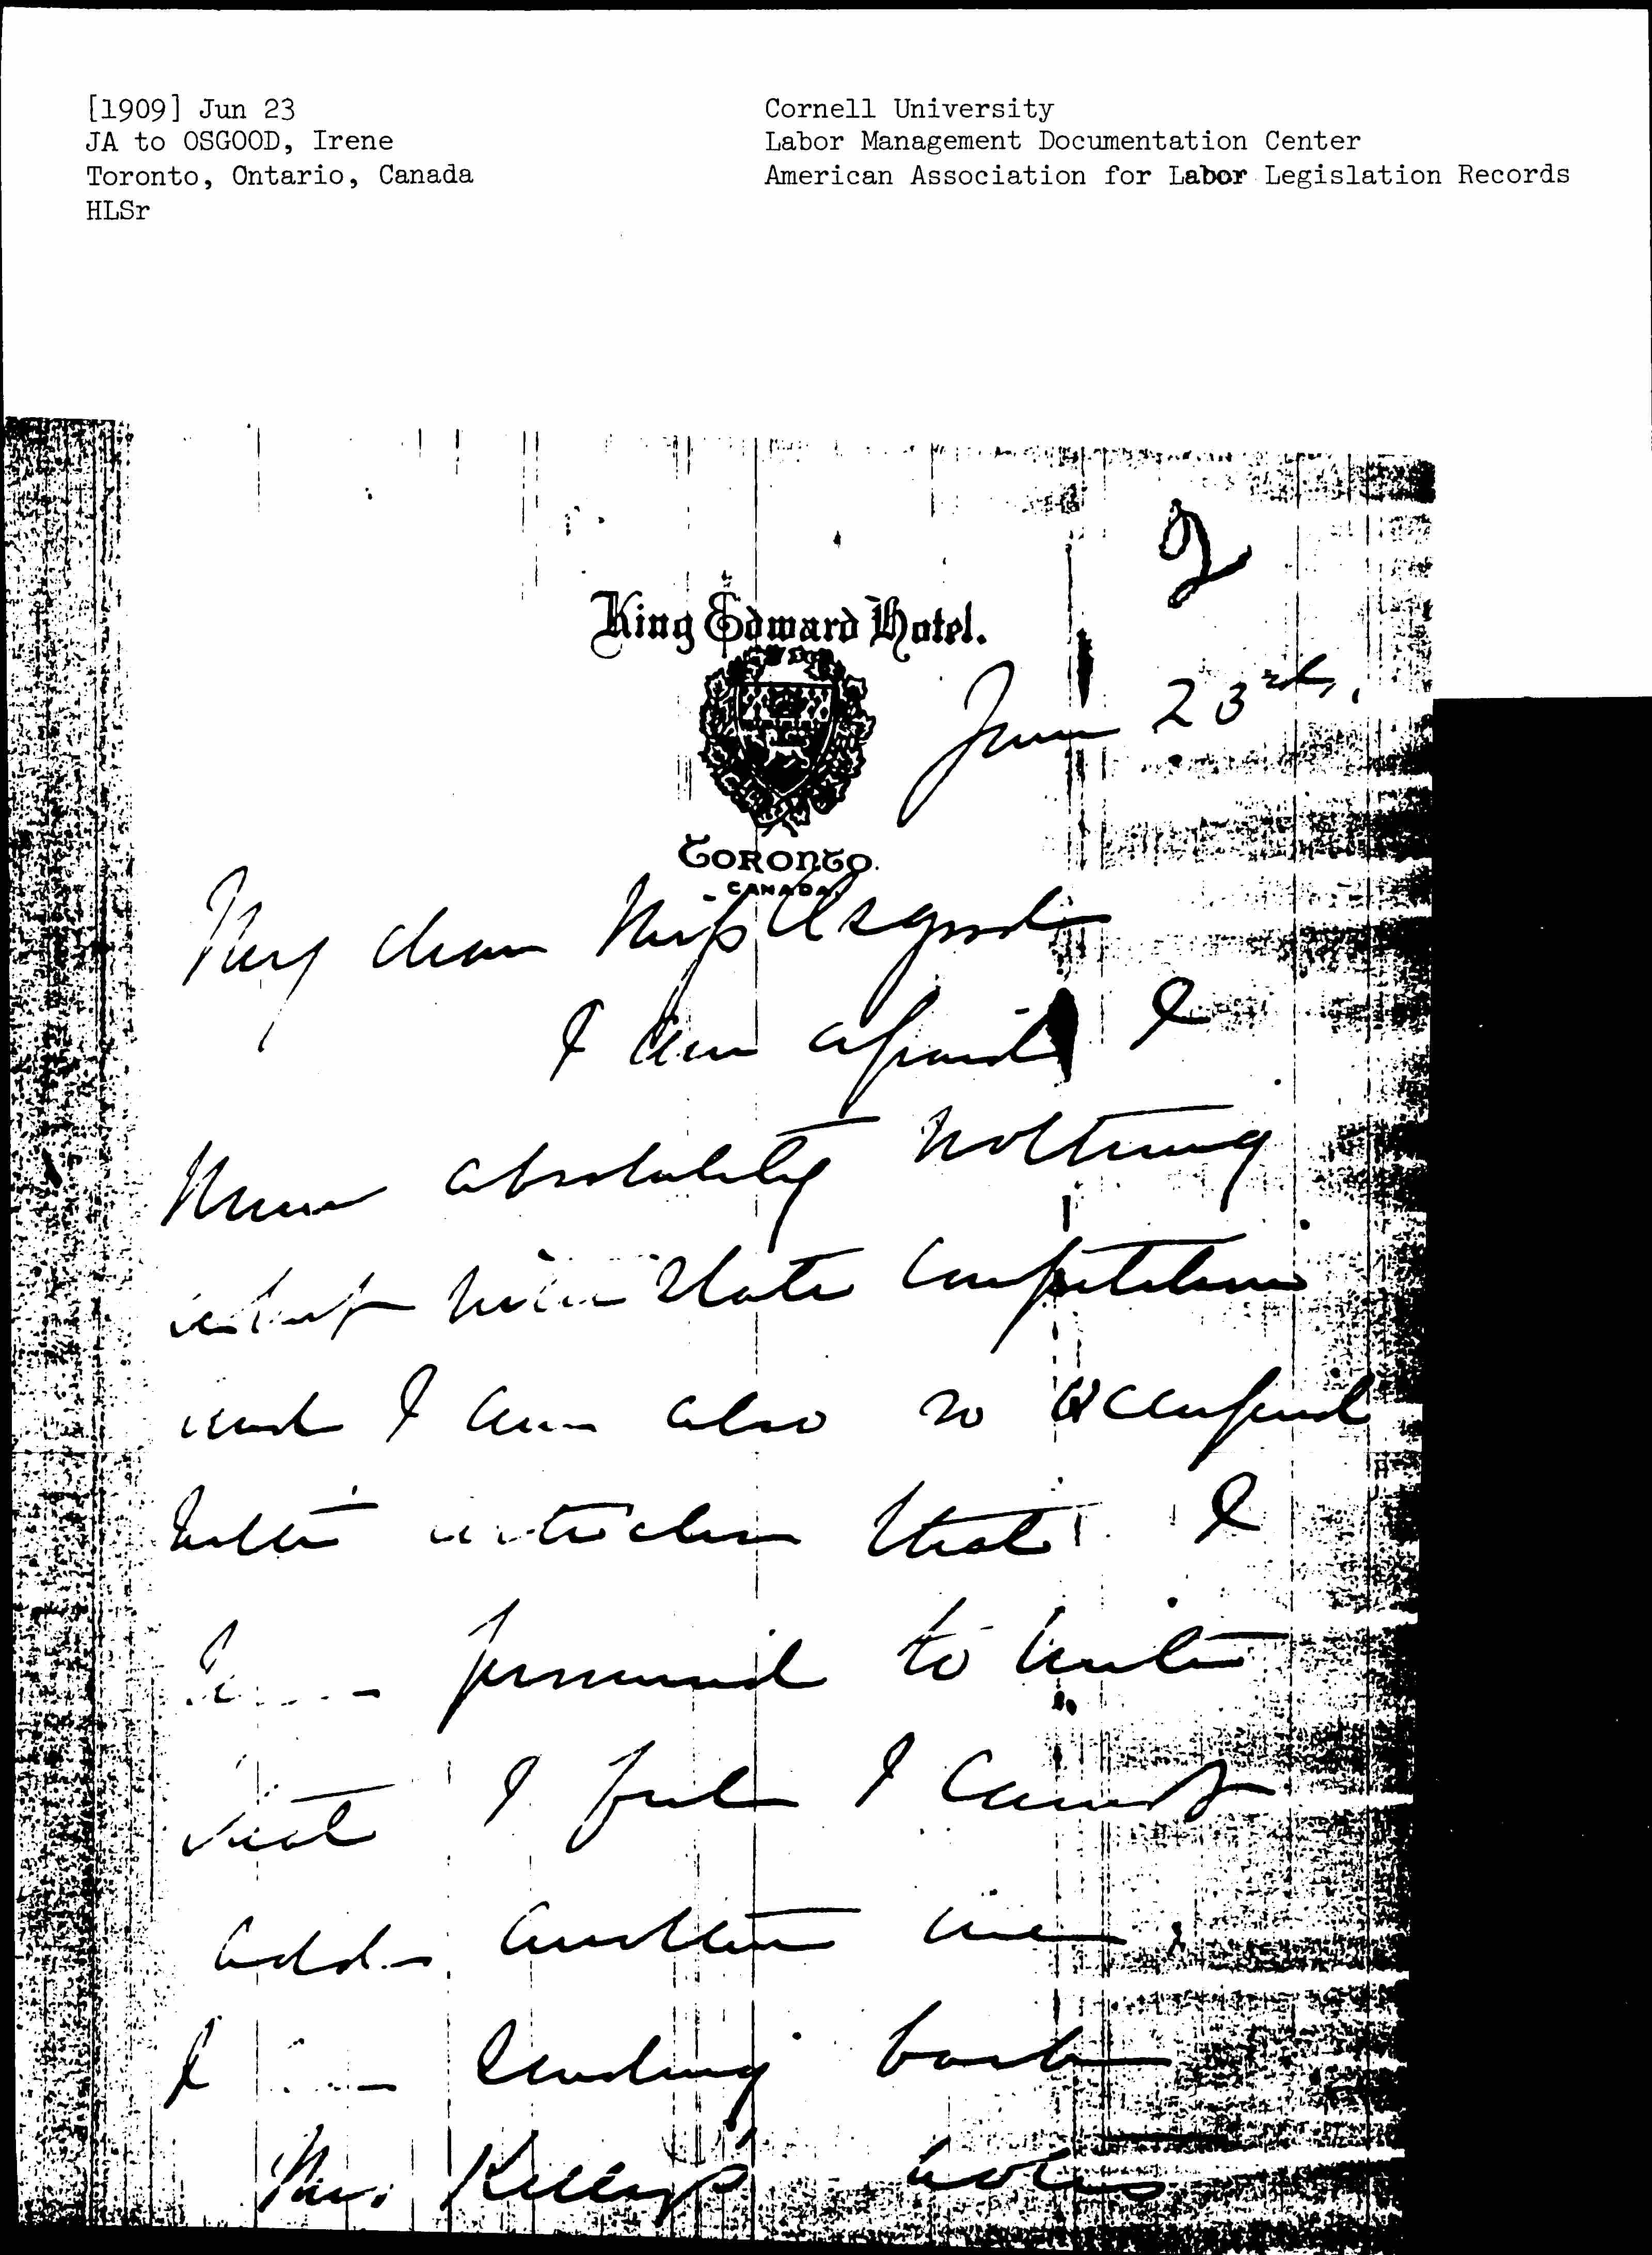 [1909] Jun 23
JA to OSGOOD, Irene
Toronto, Ontario, Canada
HLSr
Cornell University
Labor Management Documentation Center
American Association for Labor Legislation Records
2
King Edward Hotel.
June 23rd,
TORONTO.
CANADA.
My dear Miss Osgood
I am afraid I
know absolutely nothing
about inter state competition
and I am also so occupied
with articles that I
have promised to write
that I feel I cannot
add another one.
I am sending back
Mrs. Kelley's note